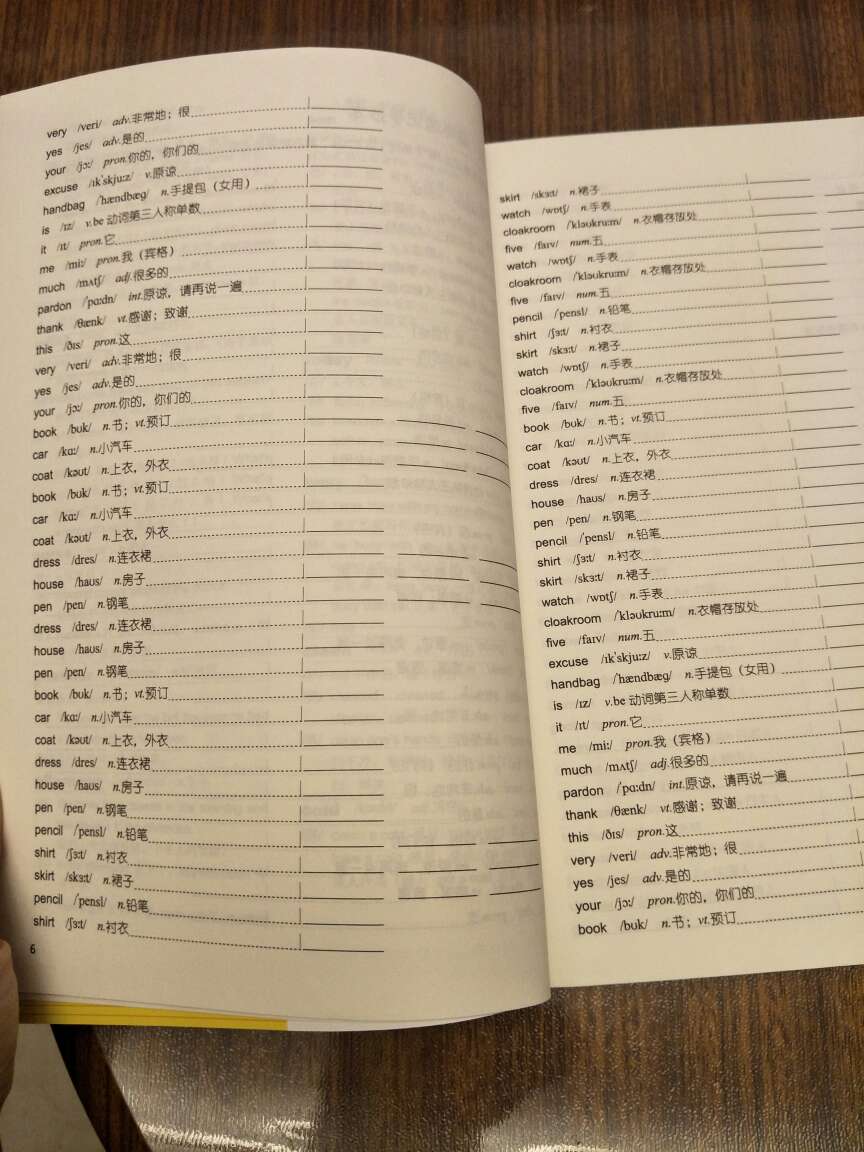 very /veri/ adv.非常地；很
yes /jes/ adv.是的
your /jɔː/ pron.你的，你们的
excuse /ɪk'skjuːz/ v.原谅
handbag /'hændbæg/ n.手提包（女用）
is /ɪz/ v.be 动词第三人称单数
it /ɪt/ pron.它
me /miː/ pron.我（宾格）
much /mʌtʃ/ adj.很多的
pardon /'pɑːdn/ int.原谅，请再说一遍
thank /θæŋk/ vt.感谢；致谢
this /ðɪs/ pron.这
very /veri/ adv.非常地；很
yes /jes/ adv.是的
your /jɔː/ pron.你的，你们的
book /bʊk/ n.书；vt.预订
car /kɑː/ n.小汽车
coat /kəʊt/ n.上衣，外衣
book /bʊk/ n.书；vt.预订
car /kɑː/ n.小汽车
coat /kəʊt/ n.上衣，外衣
dress /dres/ n.连衣裙
house /haʊs/ n.房子
pen /pen/ n.钢笔
dress /dres/ n.连衣裙
house /haʊs/ n.房子
pen /pen/ n.钢笔
book /bʊk/ n.书；vt.预订
car /kɑː/ n.小汽车
coat /kəʊt/ n.上衣，外衣
dress /dres/ n.连衣裙
house /haʊs/ n.房子
pen /pen/ n.钢笔
pencil /'pensl/ n.铅笔
shirt /ʃɜːt/ n.衬衣
skirt /skɜːt/ n.裙子
pencil /'pensl/ n.铅笔
shirt /ʃɜːt/ n.衬衣
6
skirt /skɜːt/ n.裙子
watch /wɒtʃ/ n.手表
cloakroom /'kləʊkruːm/ n.衣帽存放处
five /faɪv/ num.五
watch /wɒtʃ/ n.手表
cloakroom /'kləʊkruːm/ n.衣帽存放处
five /faɪv/ num.五
pencil /'pensl/ n.铅笔
shirt /ʃɜːt/ n.衬衣
skirt /skɜːt/ n.裙子
watch /wɒtʃ/ n.手表
cloakroom /'kləʊkruːm/ n.衣帽存放处
five /faɪv/ num.五
book /bʊk/ n.书；vt.预订
car /kɑː/ n.小汽车
coat /kəʊt/ n.上衣，外衣
dress /dres/ n.连衣裙
house /haʊs/ n.房子
pen /pen/ n.钢笔
pencil /'pensl/ n.铅笔
shirt /ʃɜːt/ n.衬衣
skirt /skɜːt/ n.裙子
watch /wɒtʃ/ n.手表
cloakroom /'kləʊkruːm/ n.衣帽存放处
five /faɪv/ num.五
excuse /ɪk'skjuːz/ v.原谅
handbag /'hændbæg/ n.手提包（女用）
is /ɪz/ v.be 动词第三人称单数
it /ɪt/ pron.它
me /miː/ pron.我（宾格）
much /mʌtʃ/ adj.很多的
pardon /'pɑːdn/ int.原谅，请再说一遍
thank /θæŋk/ vt.感谢；致谢
this /ðɪs/ pron.这
very /veri/ adv.非常地；很
yes /jes/ adv.是的
your /jɔː/ pron.你的，你们的
book /bʊk/ n.书；vt.预订